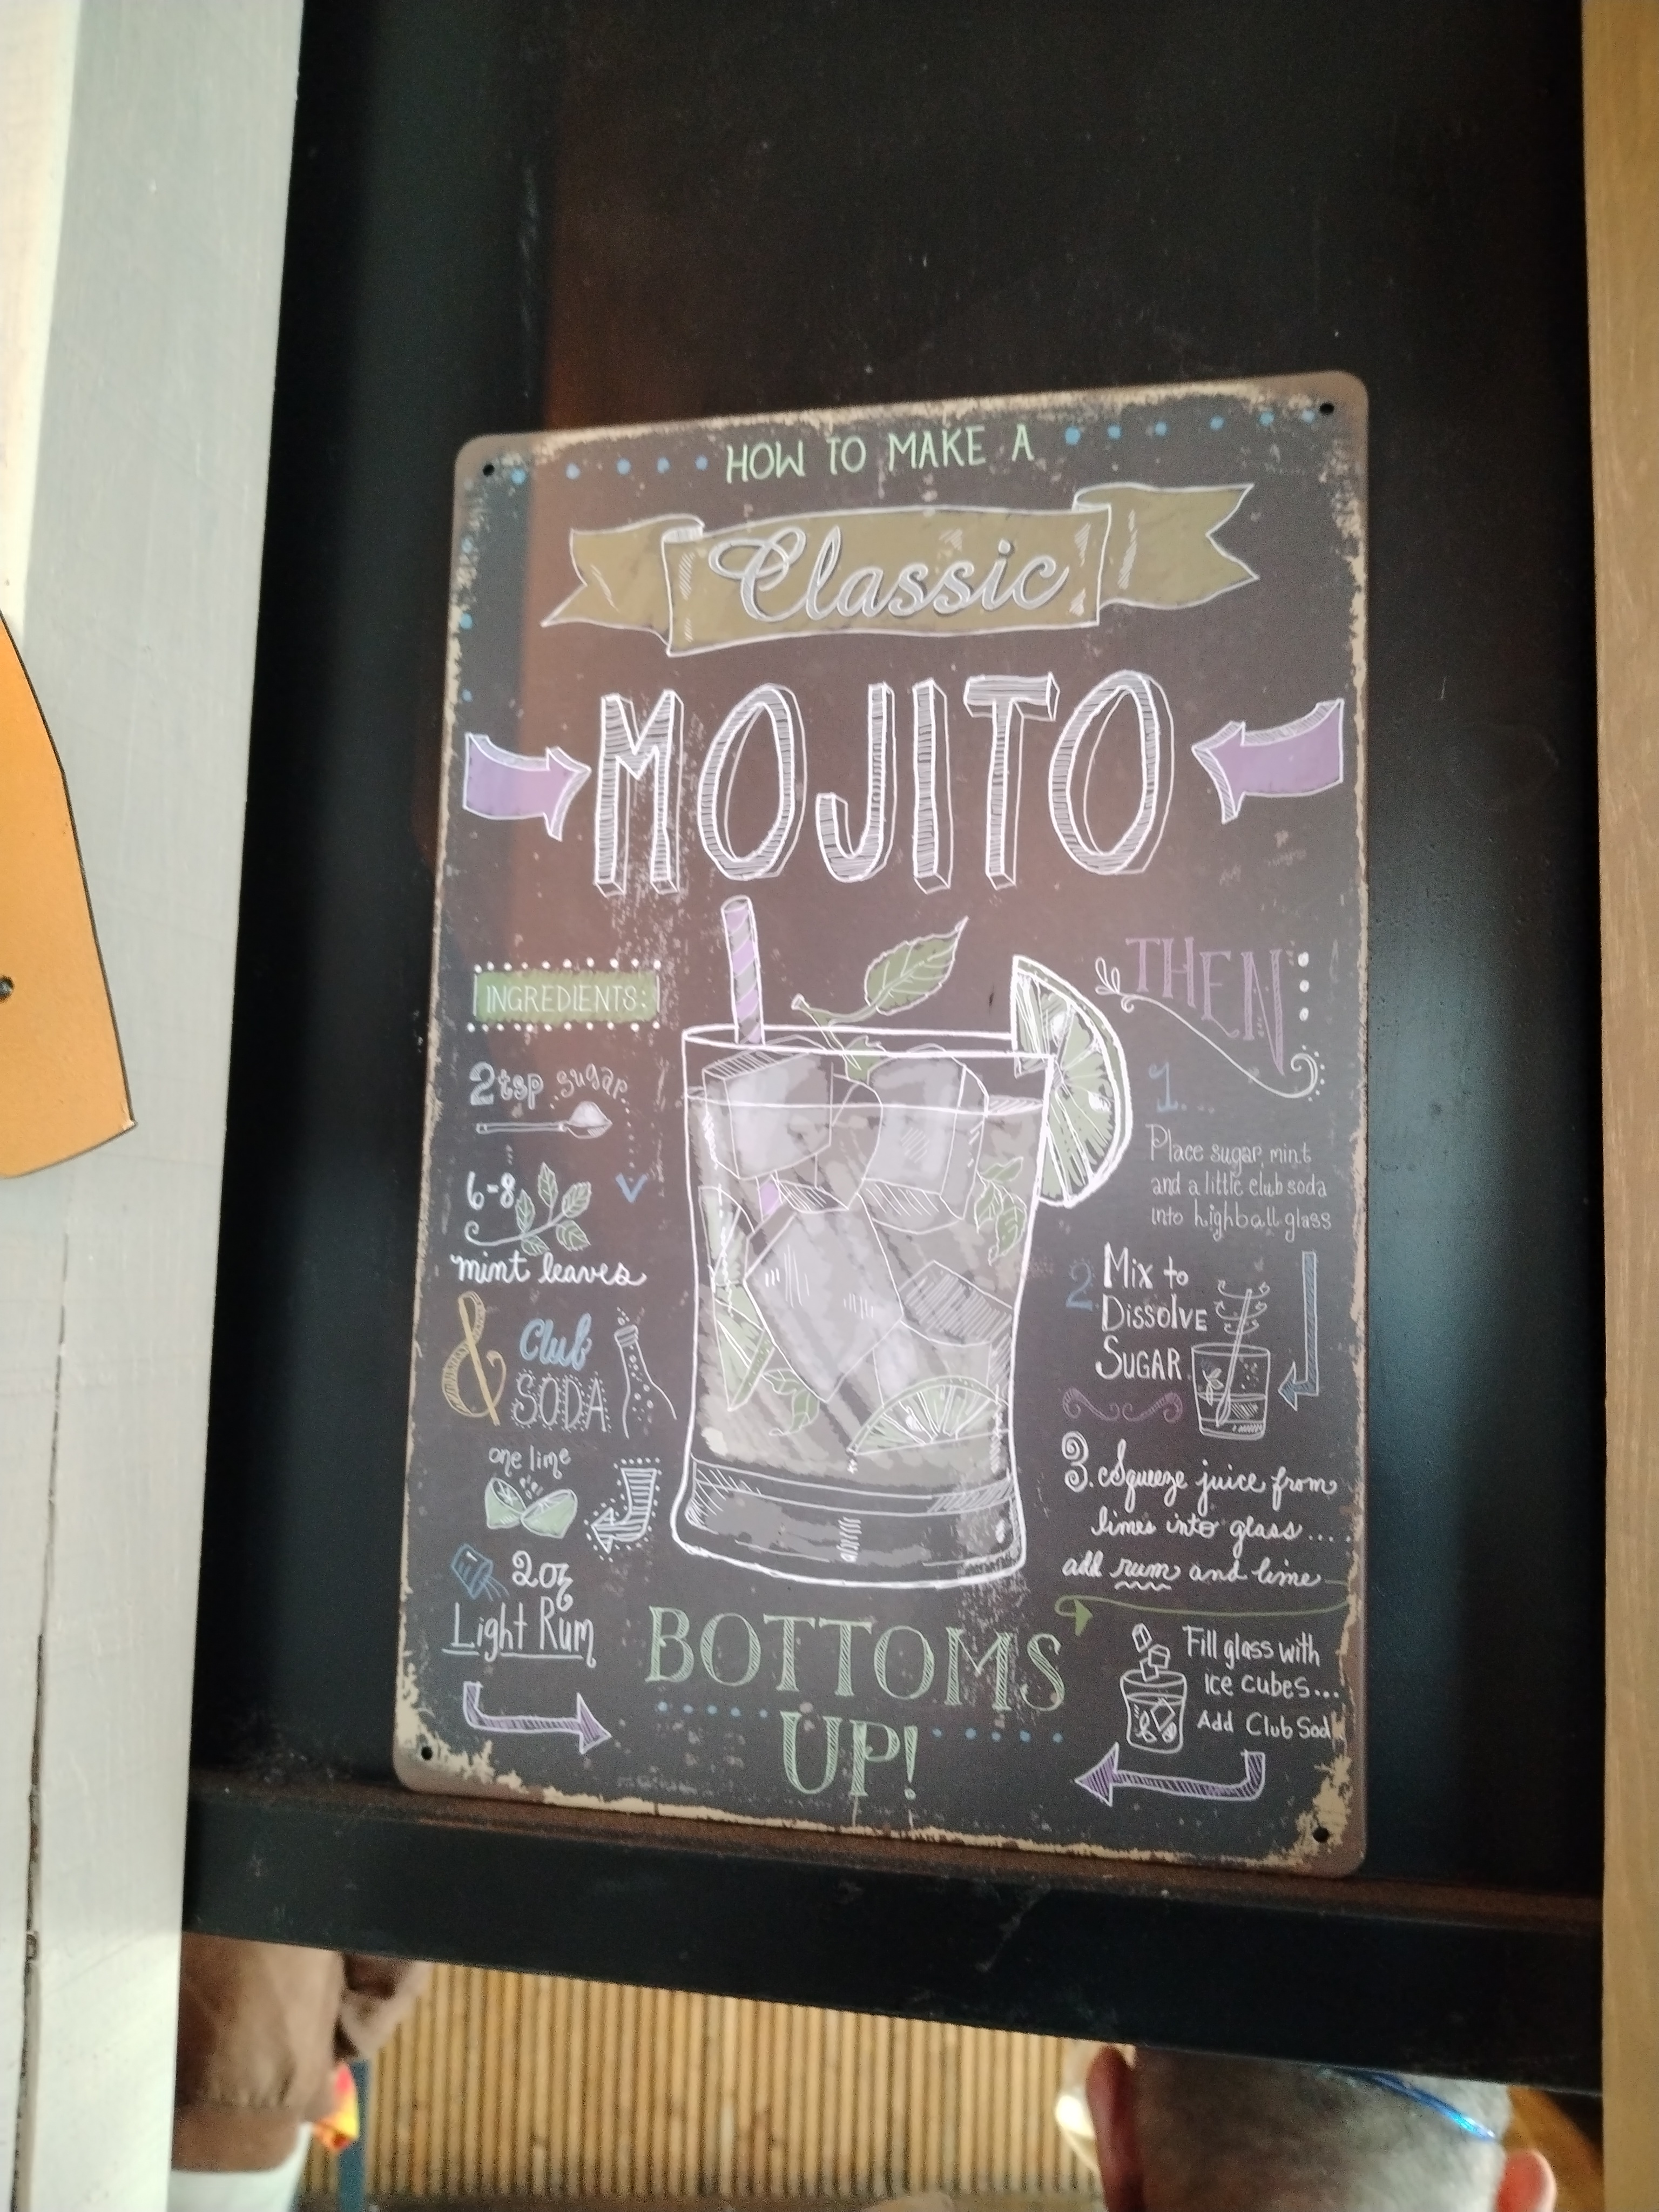 HOW TO MAKE A
Classic
MOJITO
INGREDIENTS:
2 tsp sugar
6-8
mint leaves
& Club
SODA
one lime
2oz
Light Rum
THEN
1...
Place sugar, mint
and a little club soda
into highball glass
2 Mix to
Dissolve
SUGAR
3. Squeeze juice from
limes into glass....
add rum and lime
Fill glass with
ice cubes...
Add Club Sod
BOTTOMS
UP!